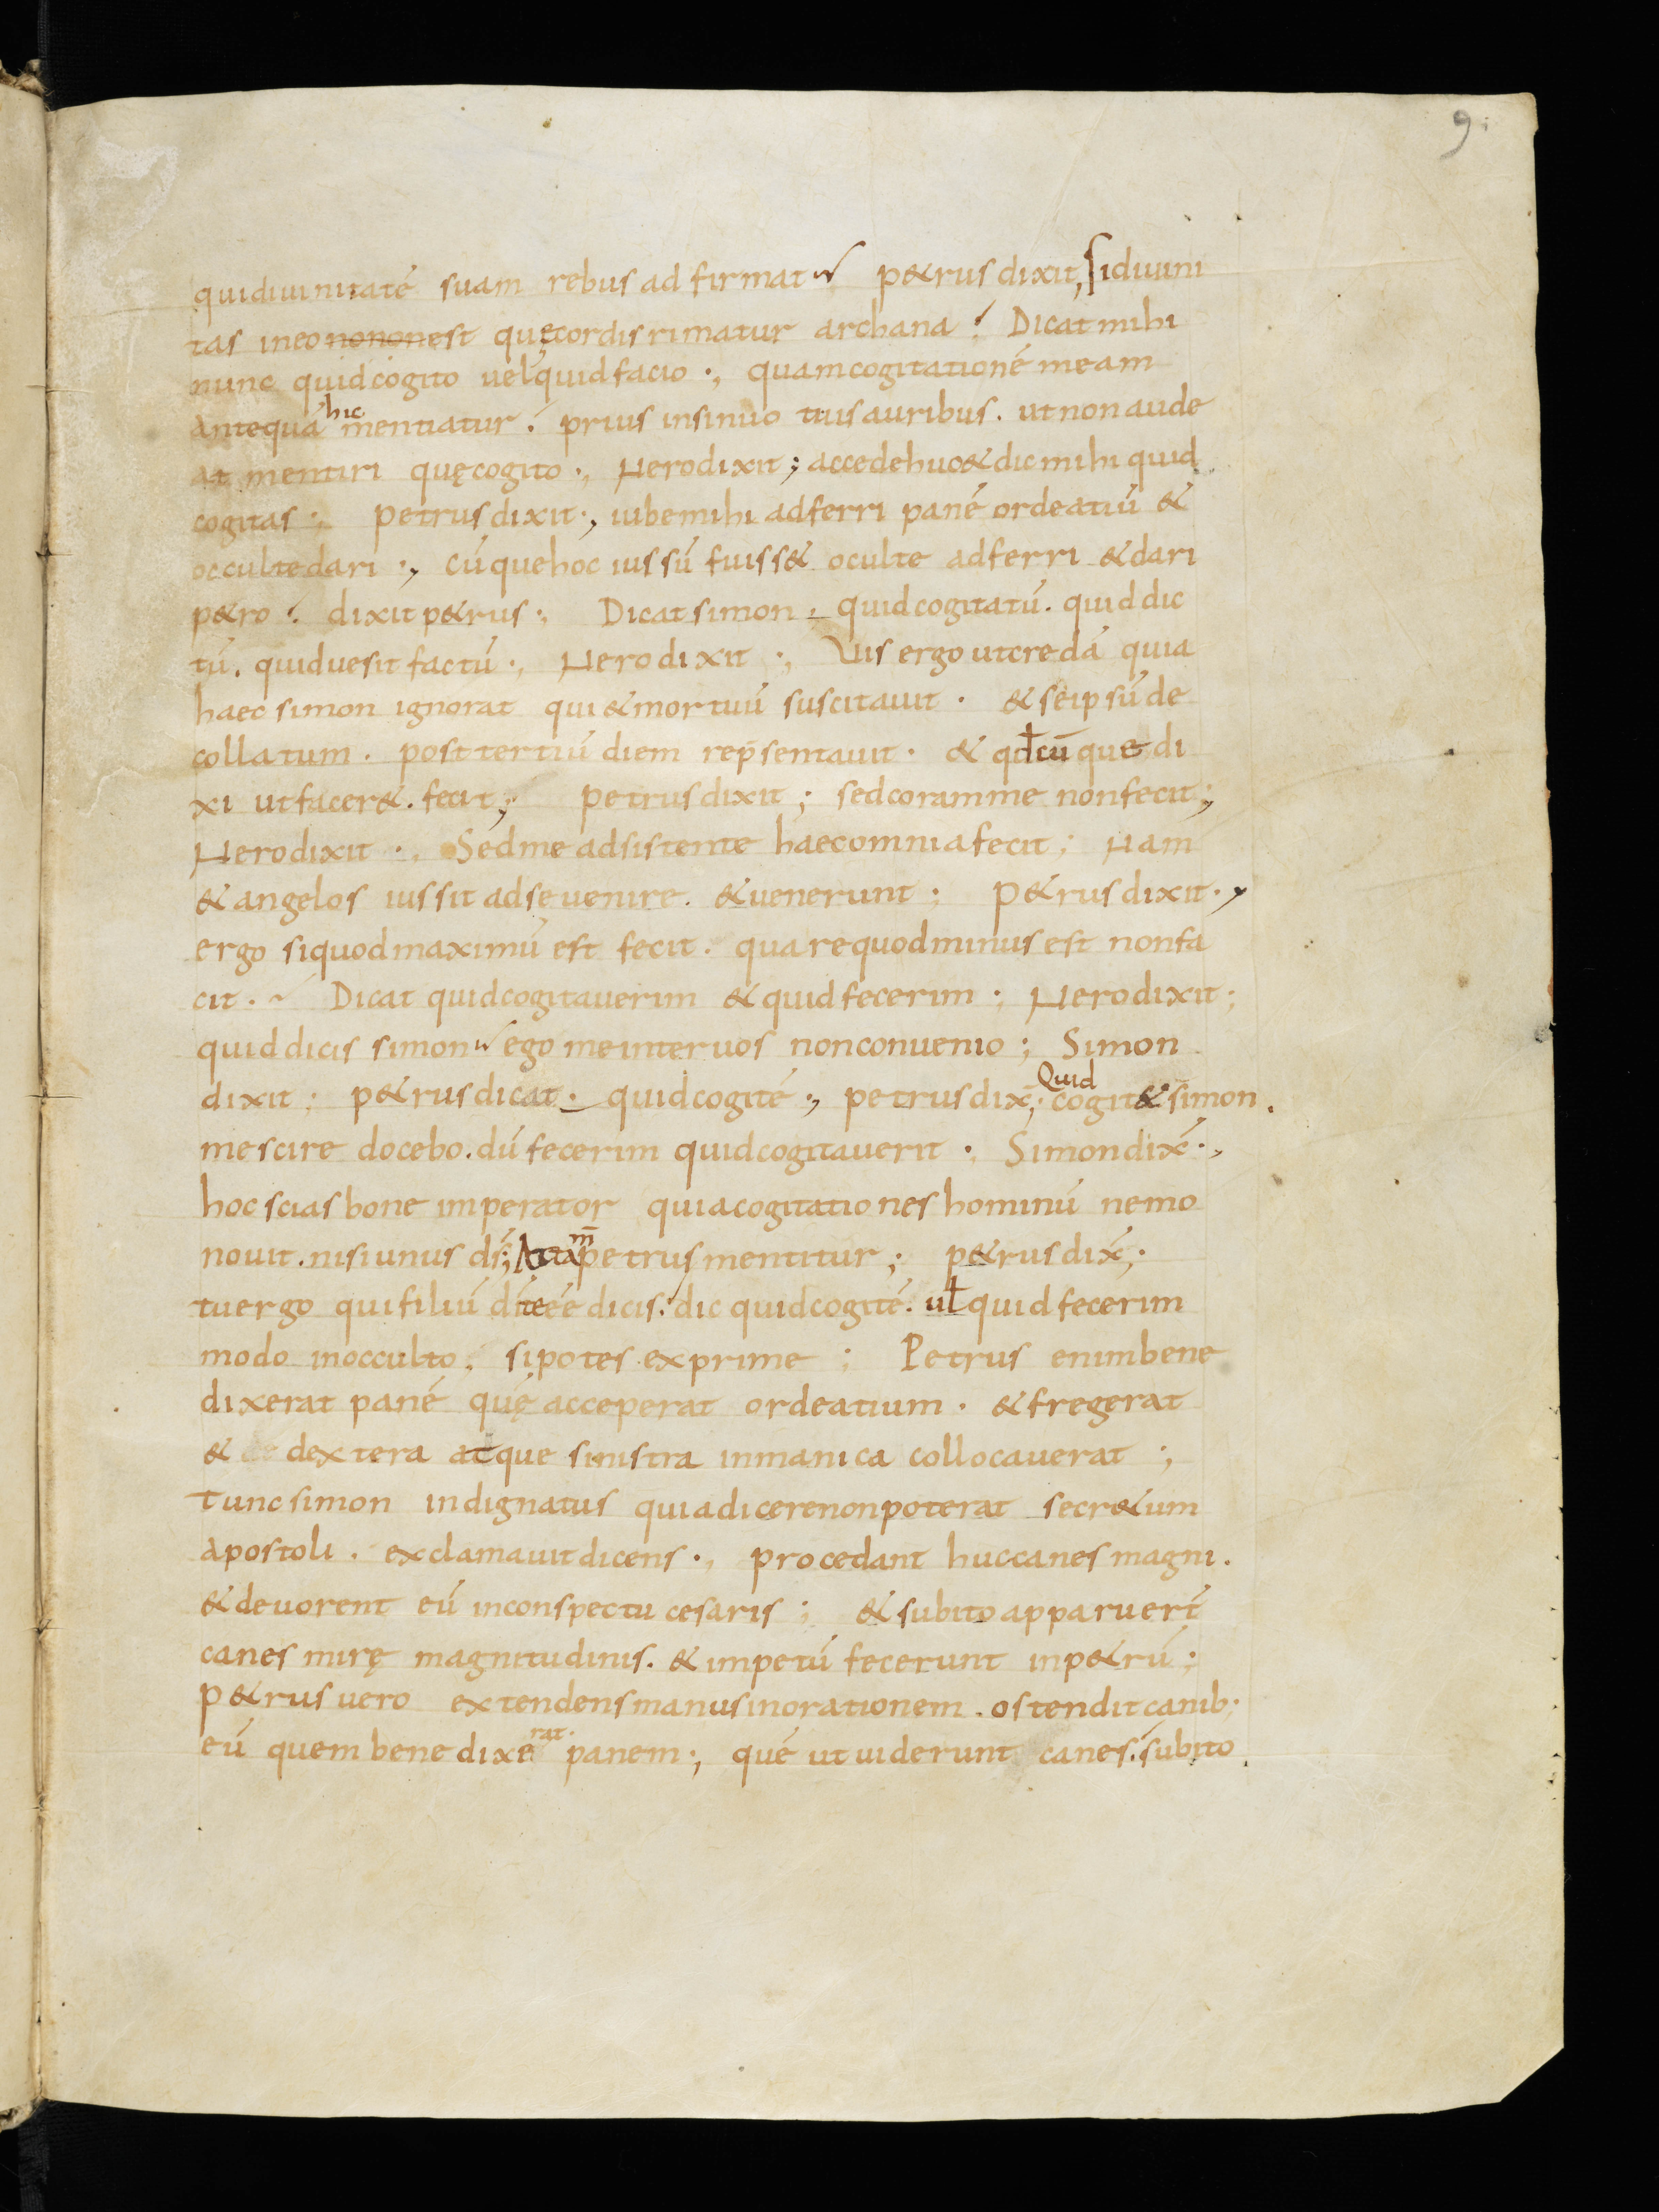 9
quidiuinitatē suam rebus ad firmat p&rus dixit, siduini
tas ineo nononest quę cordis rimatur archana / Dicat mihi
nunc quid cogito uel quid facio ·, quam cogitationē meam
antequā hic mentiatur . prius insinuo tuis auribus . ut non aude
at mentiri quę cogito ·, Nero dixit ; accede huc & dic mihi quid
cogitas ·, petrus dixit ·, iube mihi adferri panē ordeatiū &
occulte dari ·, cū que hoc iussū fuiss& oculte adferri & dari
p&ro . dixit p&rus ·, Dicat simon . quid cogitatū . quid dic
tū . quid ue sit factū ·, Nero dixit ·, Vis ergo ut credā quia
haec simon ignorat qui & mortuū suscitauit . & se ipsū de
collatum . post tertiū diem rep̄sentauit . & qđcū que di
xi ut facer& . fecit ; petrus dixit ; sed coram me non fecit ;
Nero dixit ·, Sed me adsistente haec omnia fecit ; Nam
& angelos iussit ad se uenire . & uenerunt ; P&rus dixit ·,
ergo si quod maximū est fecit . quare quod minus est non fa
cit . ~ Dicat quid cogitauerim & quid fecerim ; Nero dixit ;
quid dicis simon ego me inter uos non conuenio ; Simon
dixit ; p&rus dicat . quid cogitē ·, petrus dix̄ ; Quid cogit& simon .
me scire docebo . dū fecerim quid cogitauerit . Simon dix̄ ·,
hoc scias bone imperator quia cogitationes hominū nemo
nouit . nisi unus d̄s ; m̄ petrus mentitur ; p&rus dix̄ ;
tu ergo qui filiū dī te ēē dicis . dic quid cogitē . uł quid fecerim
modo in occulto . si potes exprime ; Petrus enim bene
dixerat panē quę acceperat ordeatium . & fregerat
& dextera atque sinistra in manica collocauerat ;
Tunc simon indignatus quia dicere non poterat secr&um
apostoli . exclamauit dicens ·, procedant huc canes magni .
& deuorent eū in conspectu cesaris ; & subito apparuerī
canes mirę magnitudinis . & impetū fecerunt in p&rū ;
p&rus uero extendens manus in orationem . ostendit canib;
eū quem bene dixerat panem ·, quē ut uiderunt canes . subito